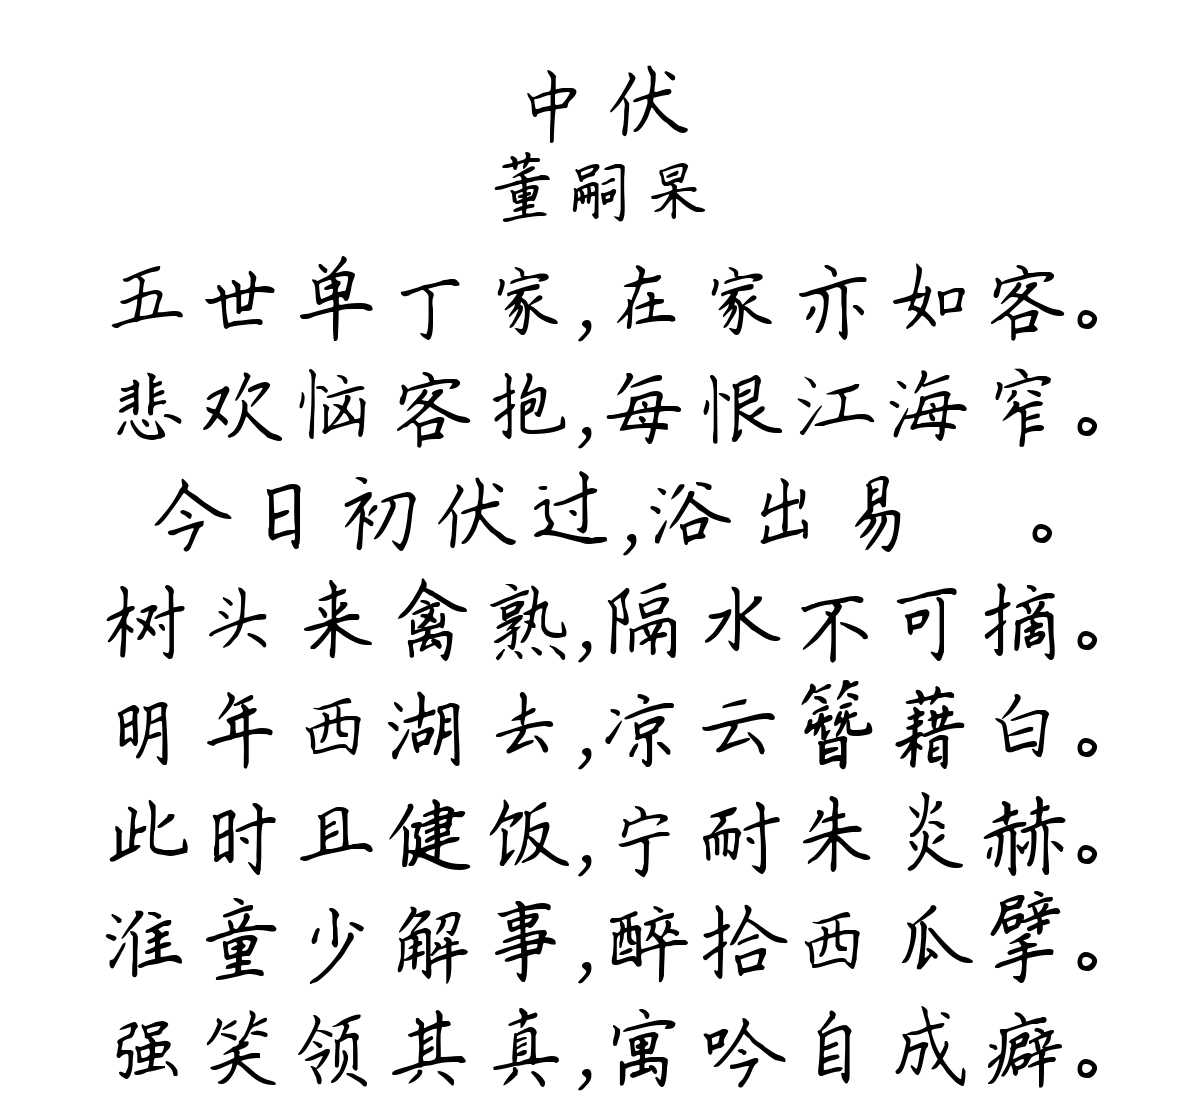 中伏
董嗣杲
五世单丁家,在家亦如客。
悲欢恼客抱,每恨江海窄。
今日初伏过,浴出易 。
树头来禽熟,隔水不可摘。
明年西湖去,凉云簪藉白。
此时且健饭,宁耐朱炎赫。
淮童少解事,醉拾西瓜擘。
强笑领其真,寓吟自成癖。